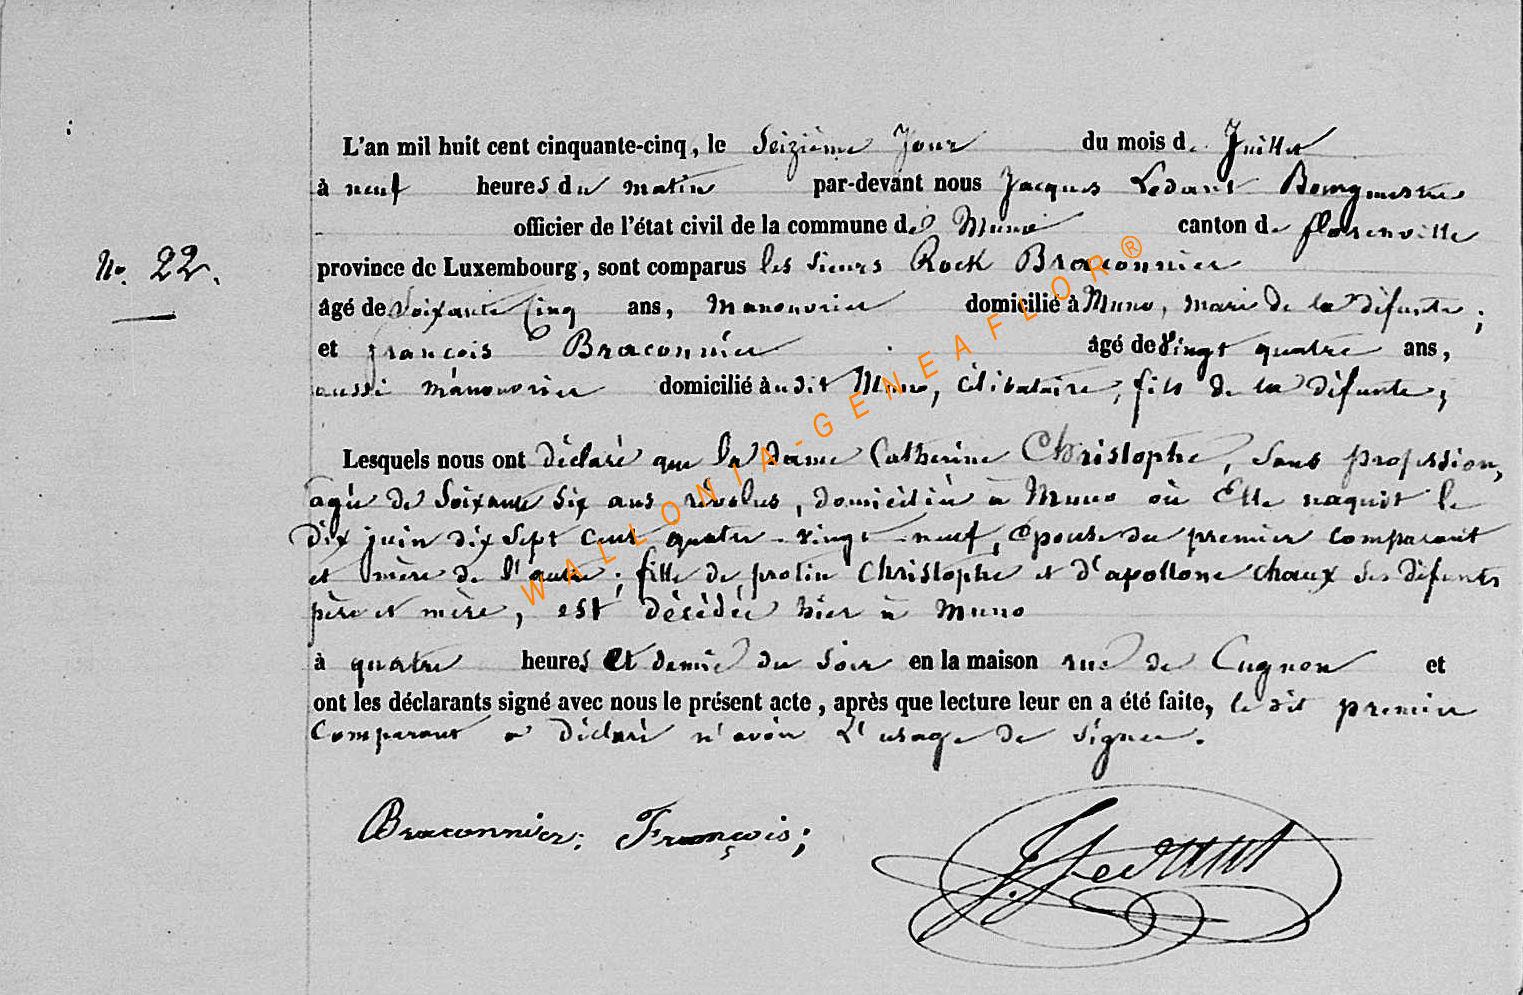 L'an mil huit cent cinquante-cinq, le Seizième Jour du mois de Juillet
à neuf heures du matin par-devant nous Jacques Ledant Bourgmestre
officier de l'état civil de la commune de Muno canton de florenville
No. 22.
province de Luxembourg, sont comparus les Sieurs Rock Braconnier
âgé de Soixante Cinq ans, Manouvrier domicilié à Muno, mari de la défunte;
et françois Braconnier âgé de Vingt quatre ans,
aussi manouvrier domicilié audit Muno, Célibataire, fils de la défunte;
Lesquels nous ont déclaré que la dame Catherine Christophe, Sans profession,
agée de Soixante Six ans révolus, domiciliée à Muno où Elle naquit le
Dix juin dix Sept Cent quatre-vingt-neuf, épouse du premier comparant
et mère de l'autre; fille de protin Christophe et d'apollone Chaux Ses défunts
père et mère, est décédée hier à Muno
à quatre heures et demie du Soir en la maison rue de Cugnon et
ont les déclarants signé avec nous le présent acte, après que lecture leur en a été faite, le dit premier
Comparant a déclaré n'avoir l'usage de signer.
Braconnier; François;
J. Ledant
WALLONIA-GENEAFLOR®